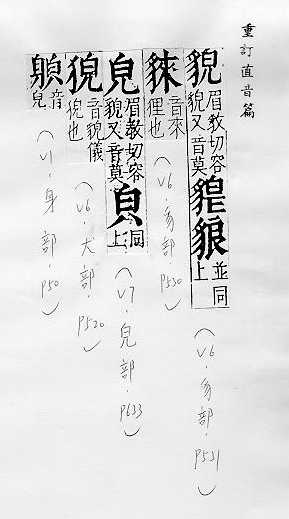 重訂直音篇
貌 眉教切容貌又音莫 並同上
(V6.豸部.P531)
音來狸也
(V6.豸部.P530)
皃 眉教切容貌又音莫 同上
(V7.皃部.P633)
音貌儀也
(V6.犬部.P520)
音兒
(V1.身部.P50)